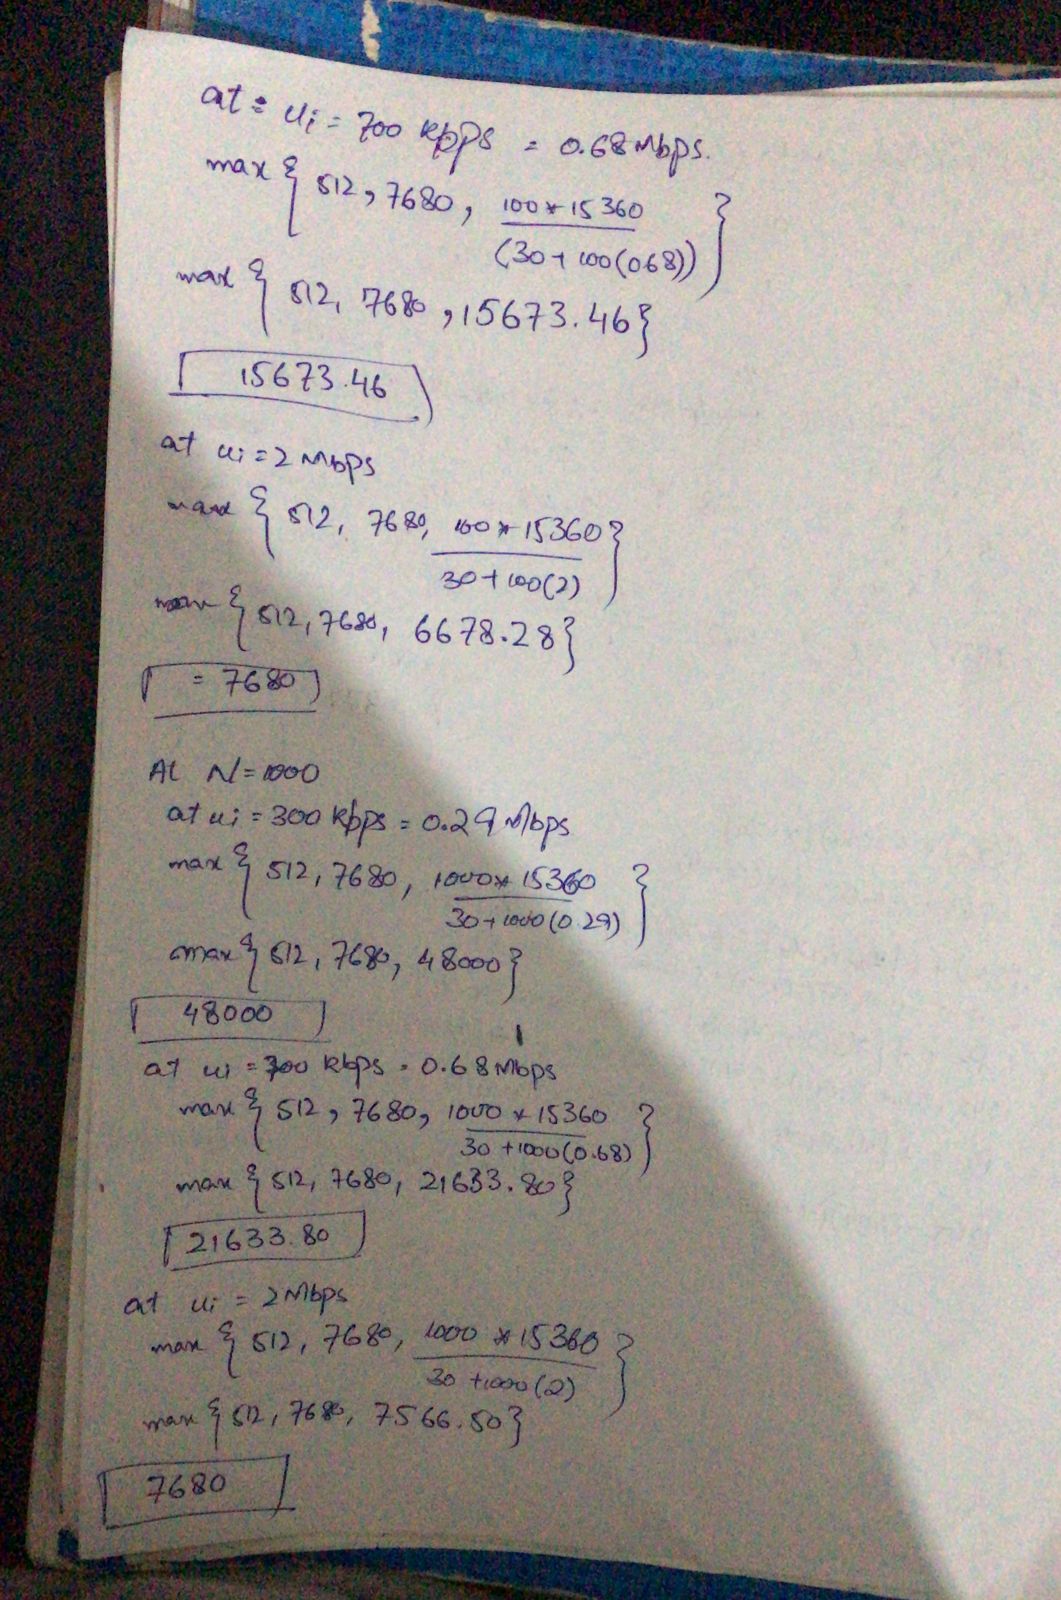 at = ui = 700 kbps = 0.68 Mbps.
max { 512, 7680, 100*15360 / (30+100(0.68)) }
max { 512, 7680, 15673.46 }
15673.46
at ui = 2 Mbps
max { 512, 7680, 100*15360 / 30+100(2) }
max { 512, 7680, 6678.28 }
= 7680
At N=1000
at ui = 300 kbps = 0.29 Mbps
max { 512, 7680, 1000*15360 / 30+1000(0.29) }
max { 512, 7680, 48000 }
48000
at ui = 700 kbps = 0.68 Mbps
max { 512, 7680, 1000*15360 / 30+1000(0.68) }
max { 512, 7680, 21633.80 }
21633.80
at ui = 2 Mbps
max { 512, 7680, 1000*15360 / 30+1000(2) }
max { 512, 7680, 7566.50 }
7680